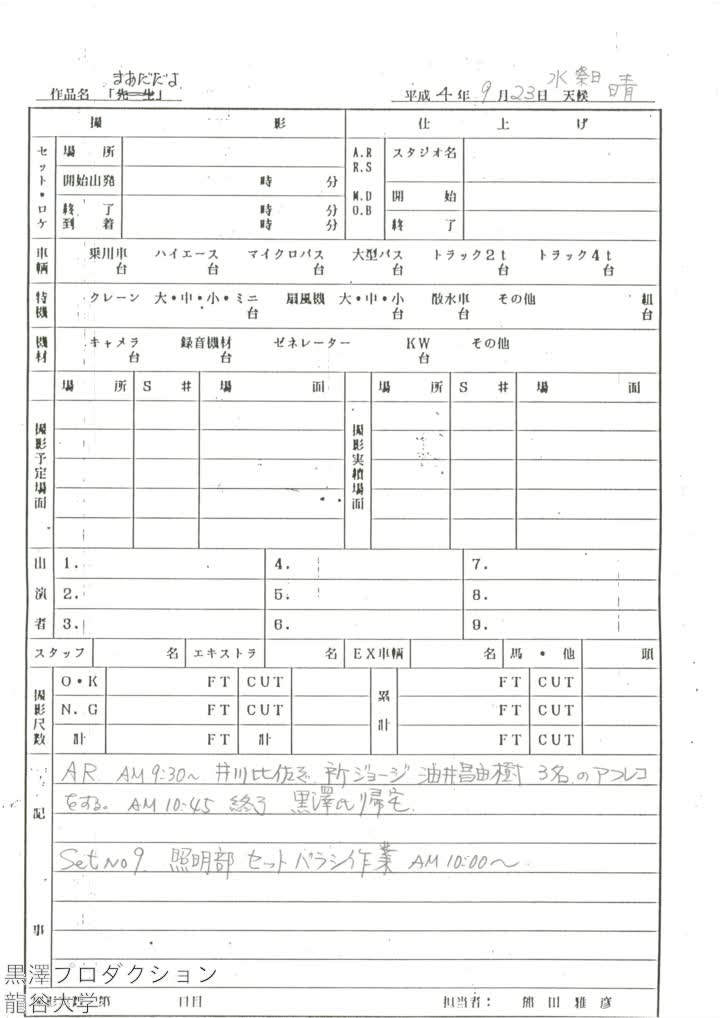 まあだだよ
作品名 「先生」
平成 4 年 9 月 23 日 水 祭日 天候 晴
撮 影
仕 上 げ
セット・ロケ
場 所
開始出発 時 分
終 了 時 分
到 着 時 分
A.R
R.S
M.D
O.B
スタジオ名
開 始
終 了
車輌
乗用車 ハイエース マイクロバス 大型バス トラック2t トラック4t
台 台 台 台 台 台
特機
クレーン 大・中・小・ミニ 扇風機 大・中・小 散水車 その他 組
台 台 台 台
機材
キャメラ 録音機材 ゼネレーター KW その他
台 台 台
撮影予定場面
場 所 S # 場 面
撮影実績場面
場 所 S # 場 面
出演者
1. 4. 7.
2. 5. 8.
3. 6. 9.
スタッフ 名 エキストラ 名 EX車輌 名 馬・他 頭
撮影尺数
O・K FT CUT
N.G FT CUT
計 FT 計
累計
FT CUT
FT CUT
FT CUT
記事
AR AM 9:30〜 井川比佐志 所ジョージ 油井昌由樹 3名のアフレコ
をする。 AM 10:45 終了 黒澤氏帰宅
Set No 9. 照明部 セットバラシ作業 AM 10:00〜
第 日目
担当者: 熊田雅彦
黒澤プロダクション
龍谷大学